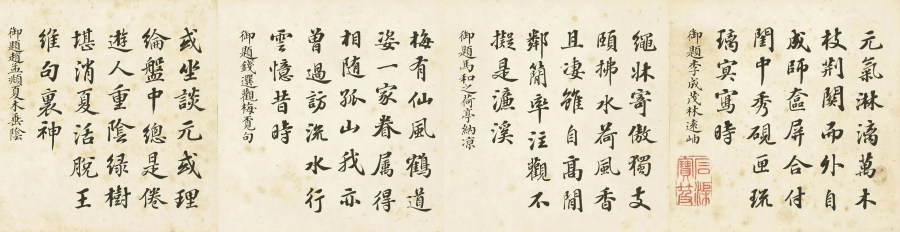 元氣淋漓萬木
枝荆關而外自
成師奩屏合付
閨中秀硯匣琉
璃冥寫時
御題李成茂林遠岫
繩牀寄傲獨支
頤拂水荷風香
且凄雖自髙閒
鄰簡率注觀不
擬是濂溪
御題馬和之荷亭納凉
梅有仙風鶴道
姿一家眷属得
相随孤山我亦
曽過訪流水行
雲憶昔時
御題錢選觀梅覓句
或坐談元或理
綸盤中總是倦
遊人重陰緑樹
堪消夏活脫王
維句裏神
御題趙孟頫夏木垂陰